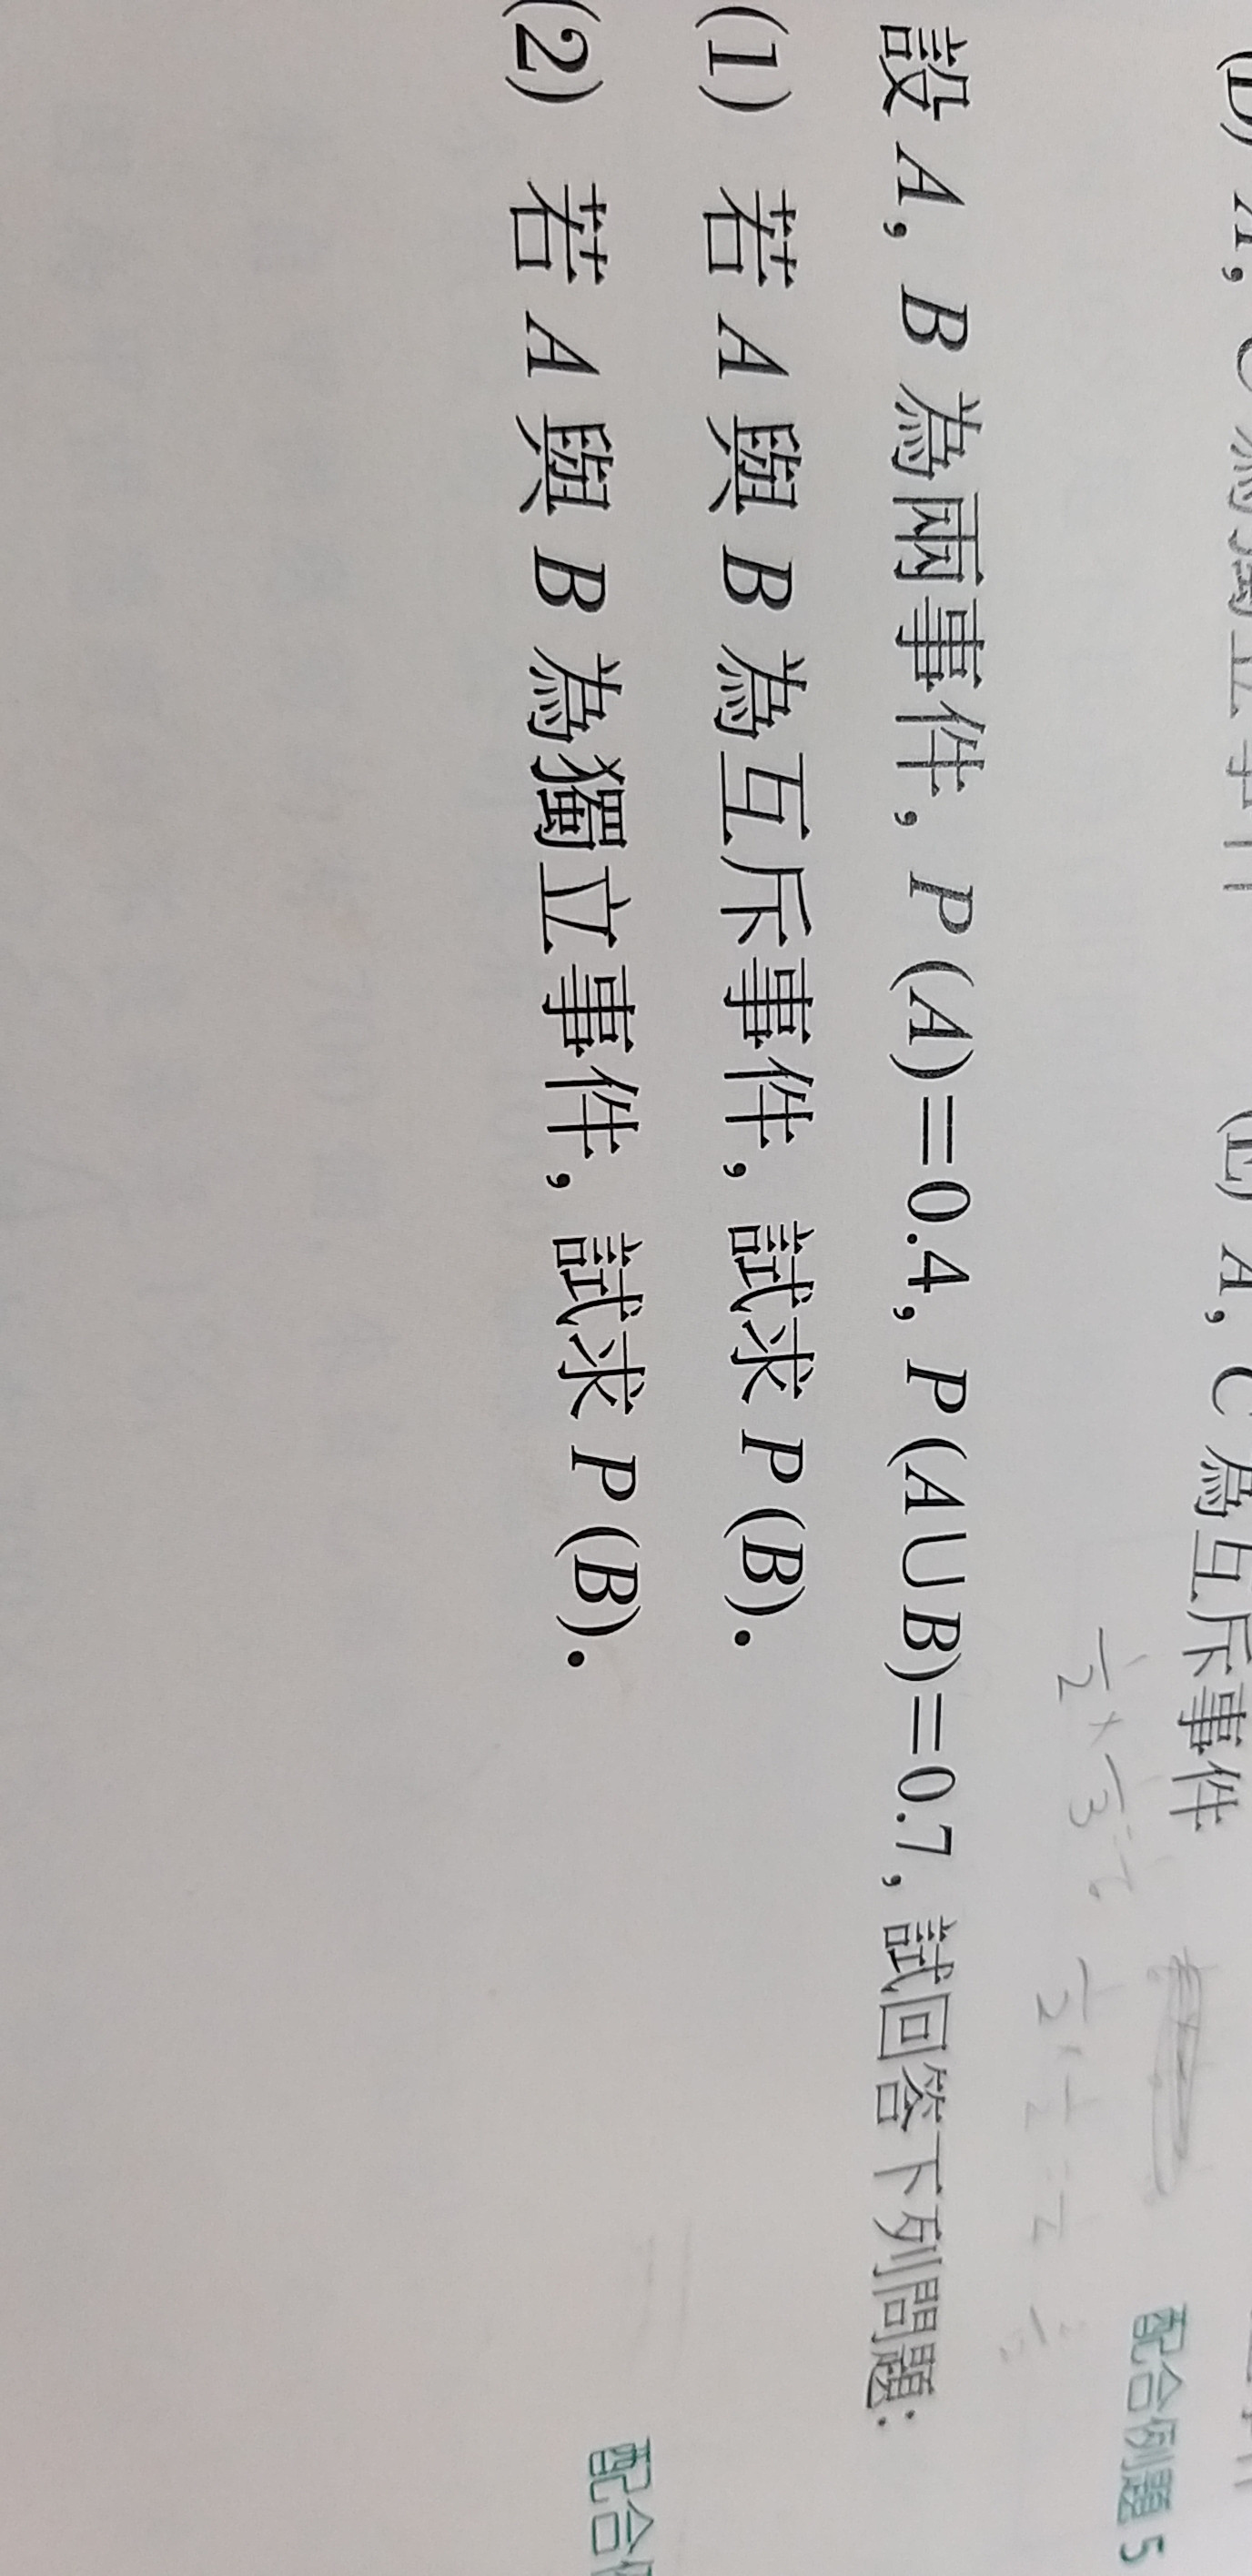 (E) A, C 為互斥事件
配合例題 5
設 A, B 為兩事件, P(A)=0.4, P(A∪B)=0.7, 試回答下列問題:
(1) 若 A 與 B 為互斥事件, 試求 P(B).
(2) 若 A 與 B 為獨立事件, 試求 P(B).
配合